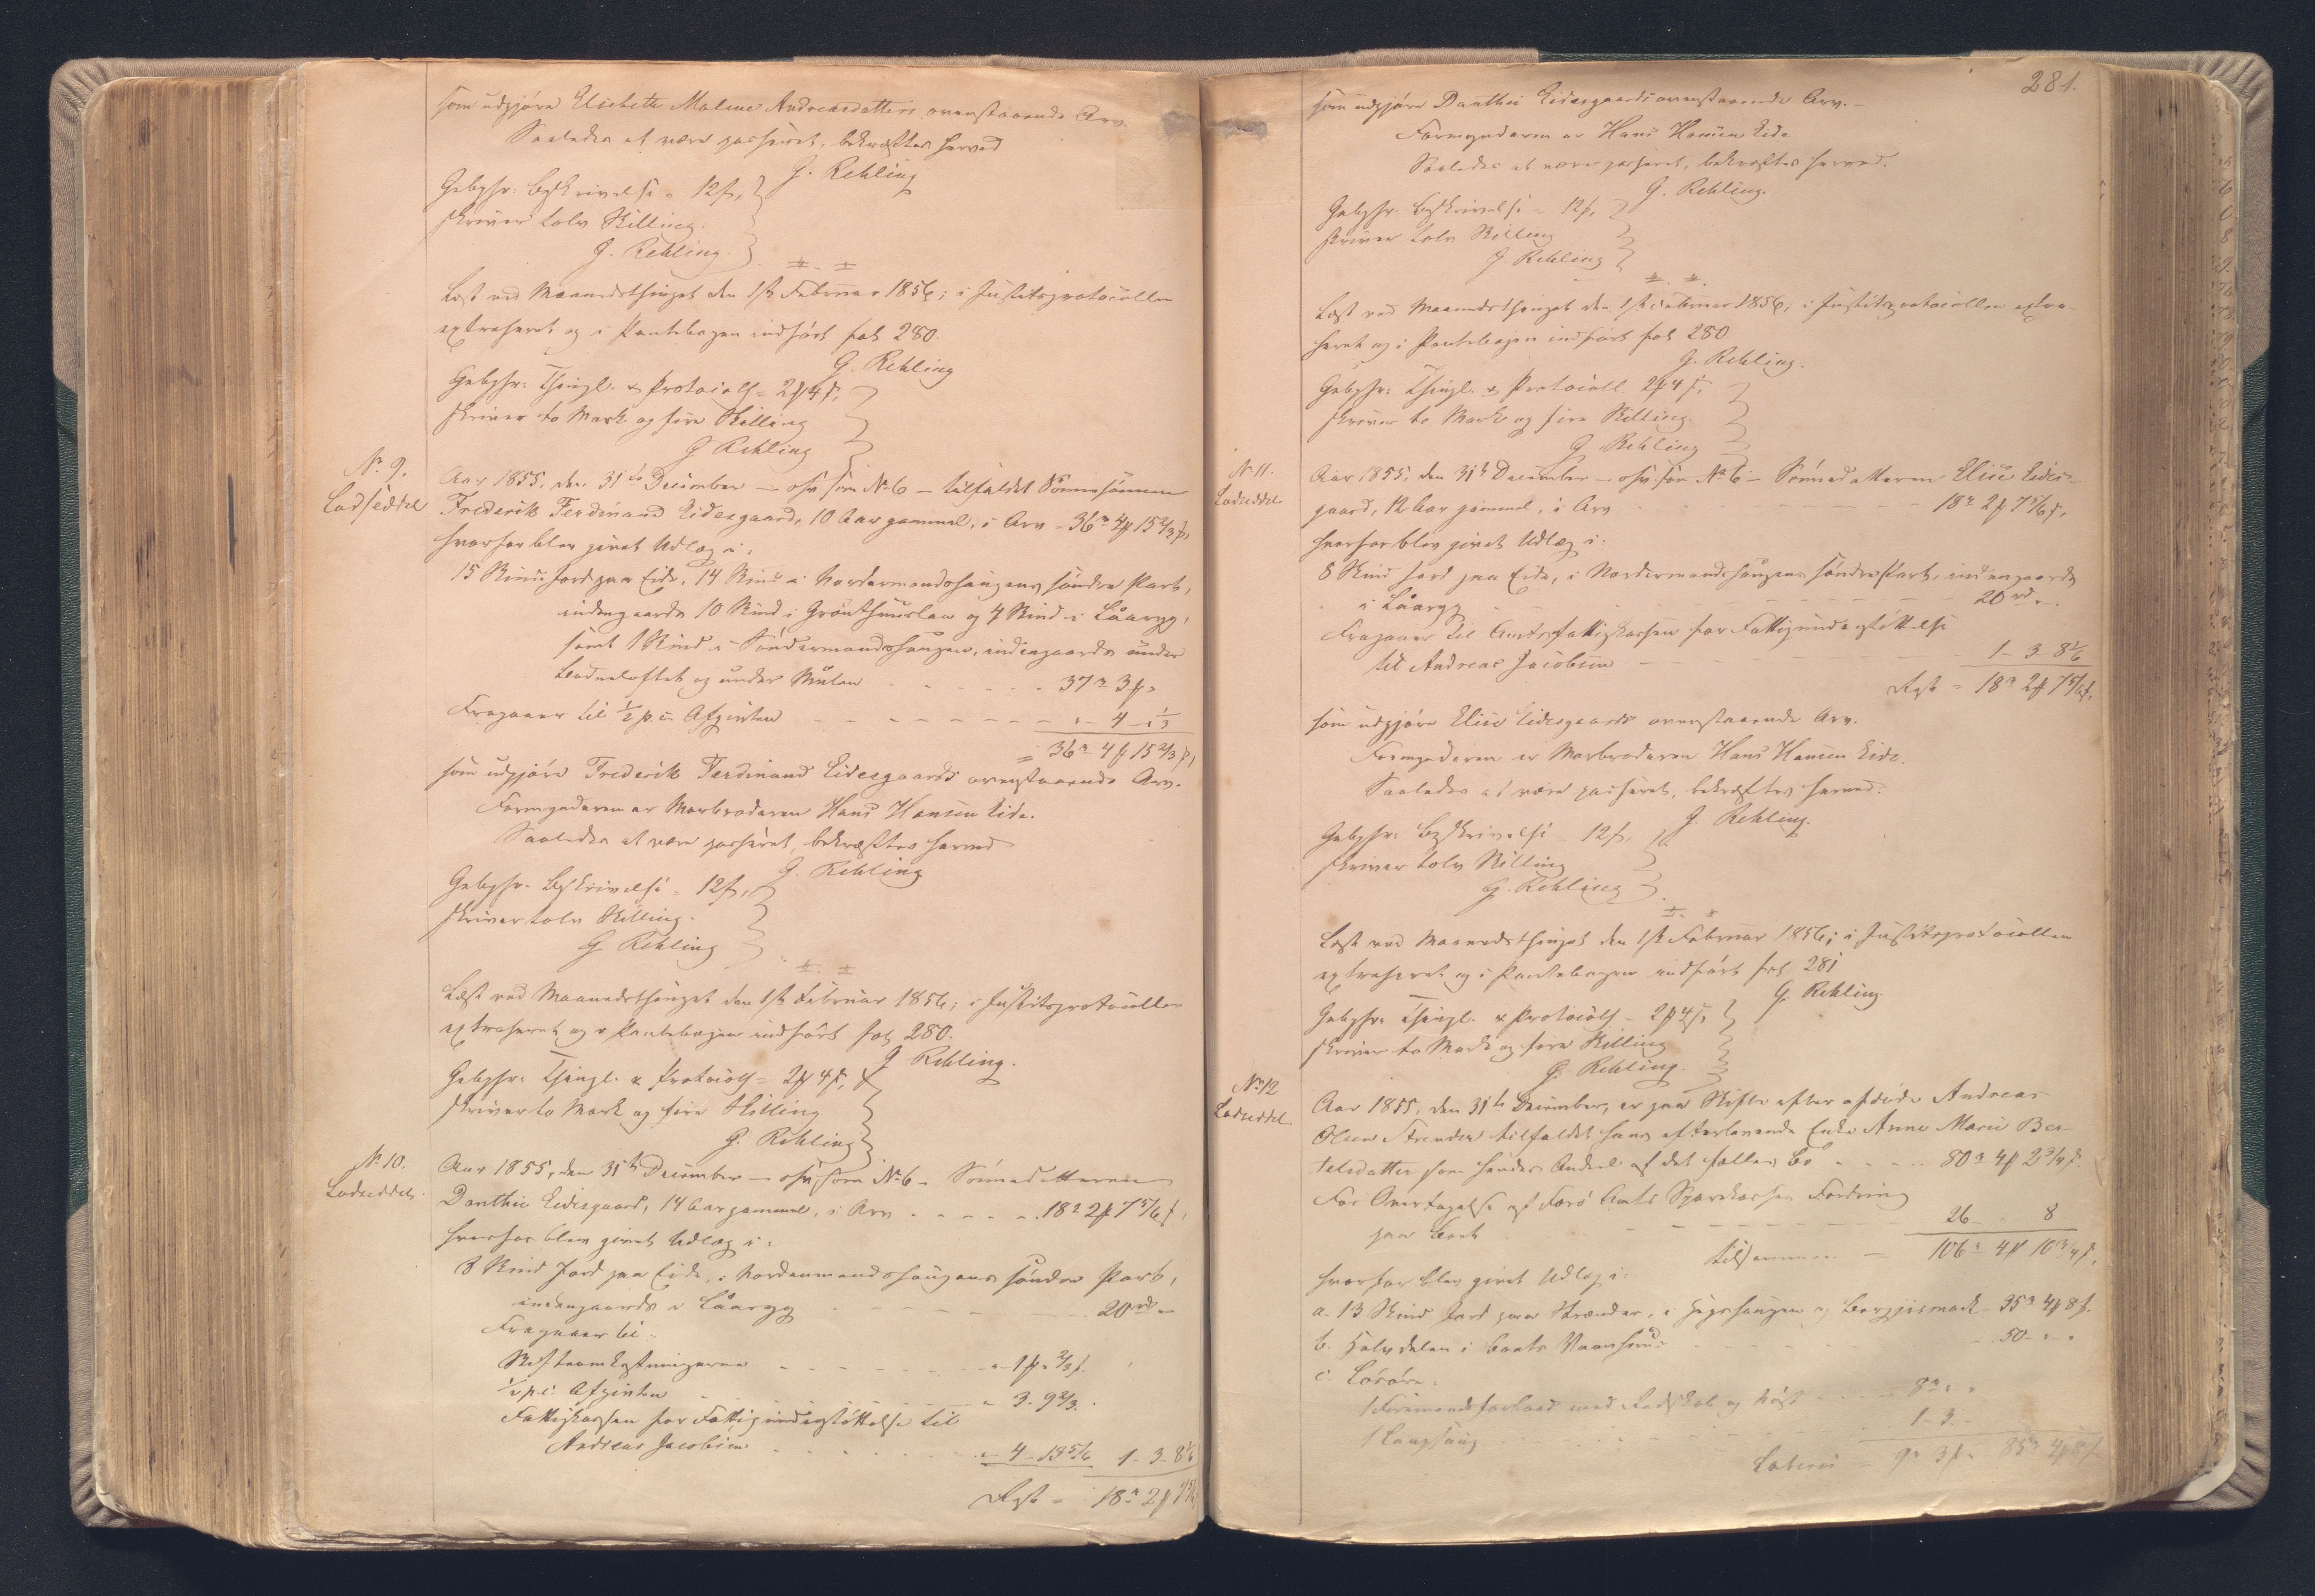 som udgjøre Elisbeth Malene Andreasdatters ovenstaaende Arv.
Saaledes at være passeret, bekræftes herved
G. Rehling
Gebyhr: Beskrivelse = 12 s,
skriver tolv Skilling.
G. Rehling.
Læst ved Maanedsthinget den 1ste Februar 1856; i Justitsprotocollen
extraheret og i Pantebogen indført fol 280.
G. Rehling
Gebyhr: Thingl. & Protocoll = 2 ℳ 4 s,
skriver to Mark og fire Skilling
G Rehling
No 9.
Lodseddel
Aar 1855, den 31te December – ohv som No 6 – tilfaldt Sønnesønnen
Frederik Ferdinand Eidesgaard, 10 Aar gammel, i Arv - 36 rd 4 ℳ 15 2/3 s,
hvorfor blev givet Udlæg i:
15 Skind Jord paa Eide, 14 Skind i Nordermandshaugens søndre Part,
indengaards 10 Skind i og 4 Skind i Låaryg,
samt 1 Skind i Søndermandshaugen, indengaards under
og under Mulen - - - 37 rd 3 ℳ "
Fragaaer til 1/2 p.c. Afgivten - - - " - 4 - 1/3
= 36 rd 4 ℳ 15 2/3 s,
som udgjøre Frederik Ferdinand Eidesgaards ovenstaaende Arv.
Formynderen er Morbroderen Hans Hansen Eide.
Saaledes at være passeret, bekræftes herved
G. Rehling
Gebyhr. Beskrivelse = 12 s,
skriver tolv Skilling.
G Rehling
Læst ved Maanedsthinget den 1ste Februar 1856; i Justitsprotocollen
extraheret og i Pantebogen indført fol 280.
G Rehling.
Gebyhr: Thingl. & Protocoll = 2 ℳ 4 s,
skriver to Mark og fire Skilling
G. Rehling
No 10.
Lodseddel.
Aar 1855, den 31te December – ohv, som No 6 – Sønnedatteren
Danthie Eidesgaard, 14 Aar gammel, i Arv - - - 18 rd 2 ℳ 7 5/6 s,
hvorfor blev givet Udlæg i:
8 Skind Jord paa Eide, i Nordermandshaugens søndre Part,
indengaards i Låaryg - - - 20 rd "
Fragaaer til:
Skifteomkostningerne - - - " 1 ℳ " 2/3 s.
1/2 p.c. Afgivten - - - " 3. 9 2/3.
Fattigkassen for Fattigunderstøttelse til
Andreas Jacobsen - - - " 4 - 13 5/6 1 - 3 - 8 1/6
Rest = 18 rd 2 ℳ 7 5/6
281.
som udgjøre Danthie Eidesgaards ovenstaaende Arv. –
Formynderen er Hans Hansen Eide
Saaledes at være passeret, bekræftes herved.
G. Rehling.
Gebyhr: Beskrivelse = 12 s,
skriver tolv Skilling
G. Rehling
Læst ved Maanedsthinget den 1ste Februar 1856, i Justitsprotocollen extra-
heret og i Pantebogen indført fol 280
G. Rehling.
Gebyhr: Thingl. & Protocoll 2 ℳ 4 s,
skriver to Mark og fire Skilling.
G Rehling
No 11.
Lodseddel
Aar 1855, den 31te December – ohv. som No 6 – Sønnedatteren Elise Eides-
gaard, 12 Aar gammel, i Arv - - - 18 rd 2 ℳ 7 5/6 s,
hvorfor blev givet Udlæg i:
8 Skind Jord paa Eide, i Nordermandshaugens søndre Part, indengaards
i Låaryg - - - 20 rd "
Fragaaer til Amtsfattigkassen for Fattigunderstøttelse
til Andreas Jacobsen - - - 1 - 3 - 8 1/6
Rest = 18 rd 2 ℳ 7 5/6 s,
som udgjøre Elise Eidesgaards ovenstaaende Arv.
Formynderen er Morbroderen Hans Hansen Eide.
Saaledes at være passeret, bekræftes herved.
G. Rehling.
Gebyhr: Beskrivelse = 12 s,
skriver tolv Skilling
G. Rehling
Læst ved Maanedsthinget den 1ste Februar 1856; i Justitsprotocollen
extraheret og i Pantebogen indført fol 281
G. Rehling.
Gebyhr: Thingl. & Protocoll = 2 ℳ 4 s,
skriver to Mark og fire Skilling
G. Rehling.
No 12
Lodseddel.
Aar 1855, den 31te December, er paa Skifte efter afdøde Andreas
Olsen Strender tilfaldet hans efterlevende Enke Anne Marie Ber-
telsdatter som hendes Andeel af det fælles Bo - - - 80 rd 4 ℳ 2 3/4 s.
For Overtagelse af Færø Amts Sparekasses Fordring
paa Boet - - - 26 - " 8
tilsammen – 106 rd 4 ℳ 10 3/4 s,
hvorfor blev givet Udlæg i:
a. 13 Skind Jord paa Strænder, i og - 35 rd 4 ℳ 8 s.
b. Halvdelen i Boets Vaanhuus - - - 50 - " "
c. Løsøre:
med Redskab og - - - 8 rd " "
1 - - - 1 - 3 -
Lateris = 9 rd 3 ℳ " 85 rd 4 ℳ 8 s